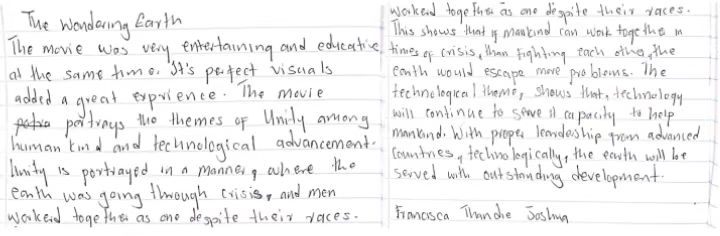 The Wondering Earth
The movie was very entertaining and educative
at the same time. It's perfect visuals
added a great exprience. The movie
portrays two themes of Unity among
human kind and technological advancement.
Unity is portrayed in a manner, where the
earth was going through crisis, and men
workerd together as one despite their races.
workerd together as one despite their races.
This shows that if mankind can work together in
times of crisis, than fighting each other, the
earth would escape more problems. The
technological theme, shows that, technology
will continue to serve it capacity to help
mankind. With proper leardeship from advanced
Countries, technologically, the earth will be
served with outstanding development.
Francisca Thandie Joshua